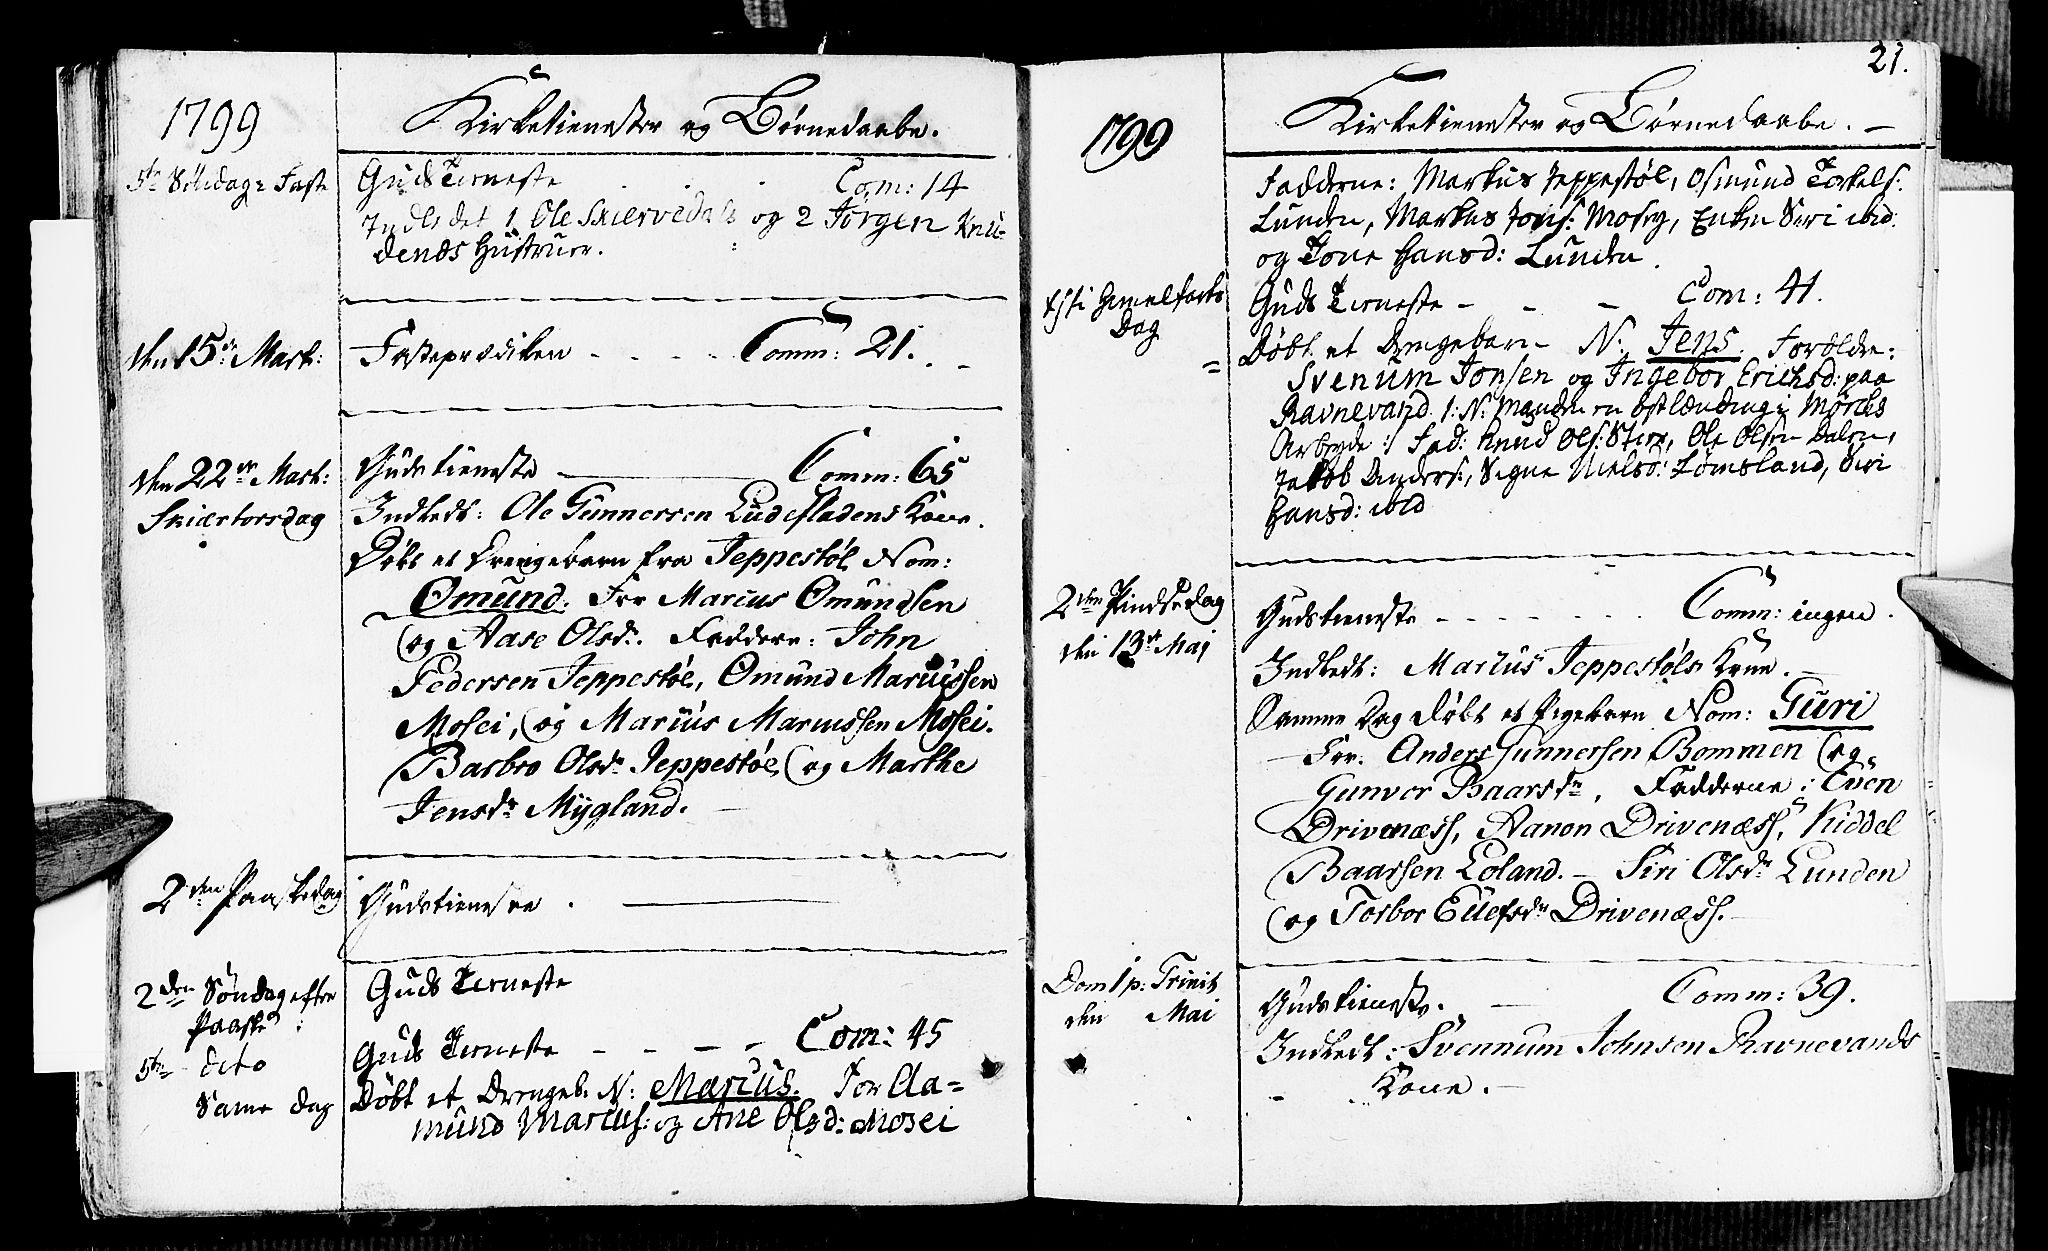 1799
Kirketienester og Børnedaabe.
5te Søndag i Faste
Guds Tieneste . . . Com: 14
Indledet 1 Ole Skiervedals og 2 Jörgen Knu-
dens Hustruer.
den 15de Mart:
Fasteprædiken - - - - Comm: 21.
den 22de Mart:
Skiertorsdag
Gudstieneste Comm: 65
Indledt: Ole Gunnersen Ludefladens Kone.
Døbt et Drengebarn fra Jeppestøl Nom:
Omund. For Marcus Omundsen
og Aase Olsdr. Faddere: John
Pedersen Jeppestøl, Omund Marcussen
Mosei, og Marcus Marcussen Mosei.
Barbro Olsdr Jeppestøl, og Marthe
Jensdr Mygland.
2den Paaskedag
Gudstieneste.
2den Søndag efter
Paaske:
Guds Tieneste
5te dito
Guds Tieneste - - - - Com: 45
Same dag
Døbt et Drengeb. N: Marcus. For Aa-
mund Marcus: og Ane Olsd: Mosei
21.
1799
Kirketienester og Børnedaabe.
Fadderne: Markus Jeppestøl, Osmund Torkels.
Lunden, Markus Jons: Mosey, Enken Siri ibid:
og Tone Hansd: Lunden.
Christi Himmelfarts
Dag
Guds Tieneste - - - Com: 41.
Døbt et Drengebarn N: Jens. Forældre:
Svenum Jonsen og Ingebor Erichsd: paa
Ravnevand. /: N: Manden en Østlænding i Mørchs
Arbeyde :/ Fad: Knud Ols: Steen, Ole Olsen Dalen,
Jakob Anders:, Signe Nielsd: Lømsland, Siri
Hansd: ibid
2den Pindsedag
den 13de Mai
Gudstieneste - - - - Comm: ingen.
Indledt: Marcus Jeppestøls Kone.
Samme Dag døbt et Pigebarn Nom: Guri
For. Anders Gunnersen Bommen og
Gunvor Baarsdr. Fadderne: Even
Drivenæss, Aanon Drivenæss, Kiddel
Baarsen Loland. - Siri Olsdr Lunden
og Torbor Ellefsdr Drivenæss.
Dom 1 p: Trinit
den Mai
Gudstieneste. - Comm: 39.
Indledt: Svennum Johnsen Ravnevands
Kone.